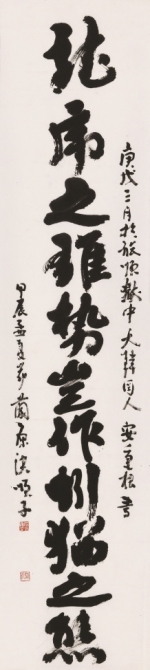 龍虎之雄势豈作蚓猫之態
庚戌三月於旅順獄中 大韓国人 安重根 書
甲辰孟夏節 蘭 順子